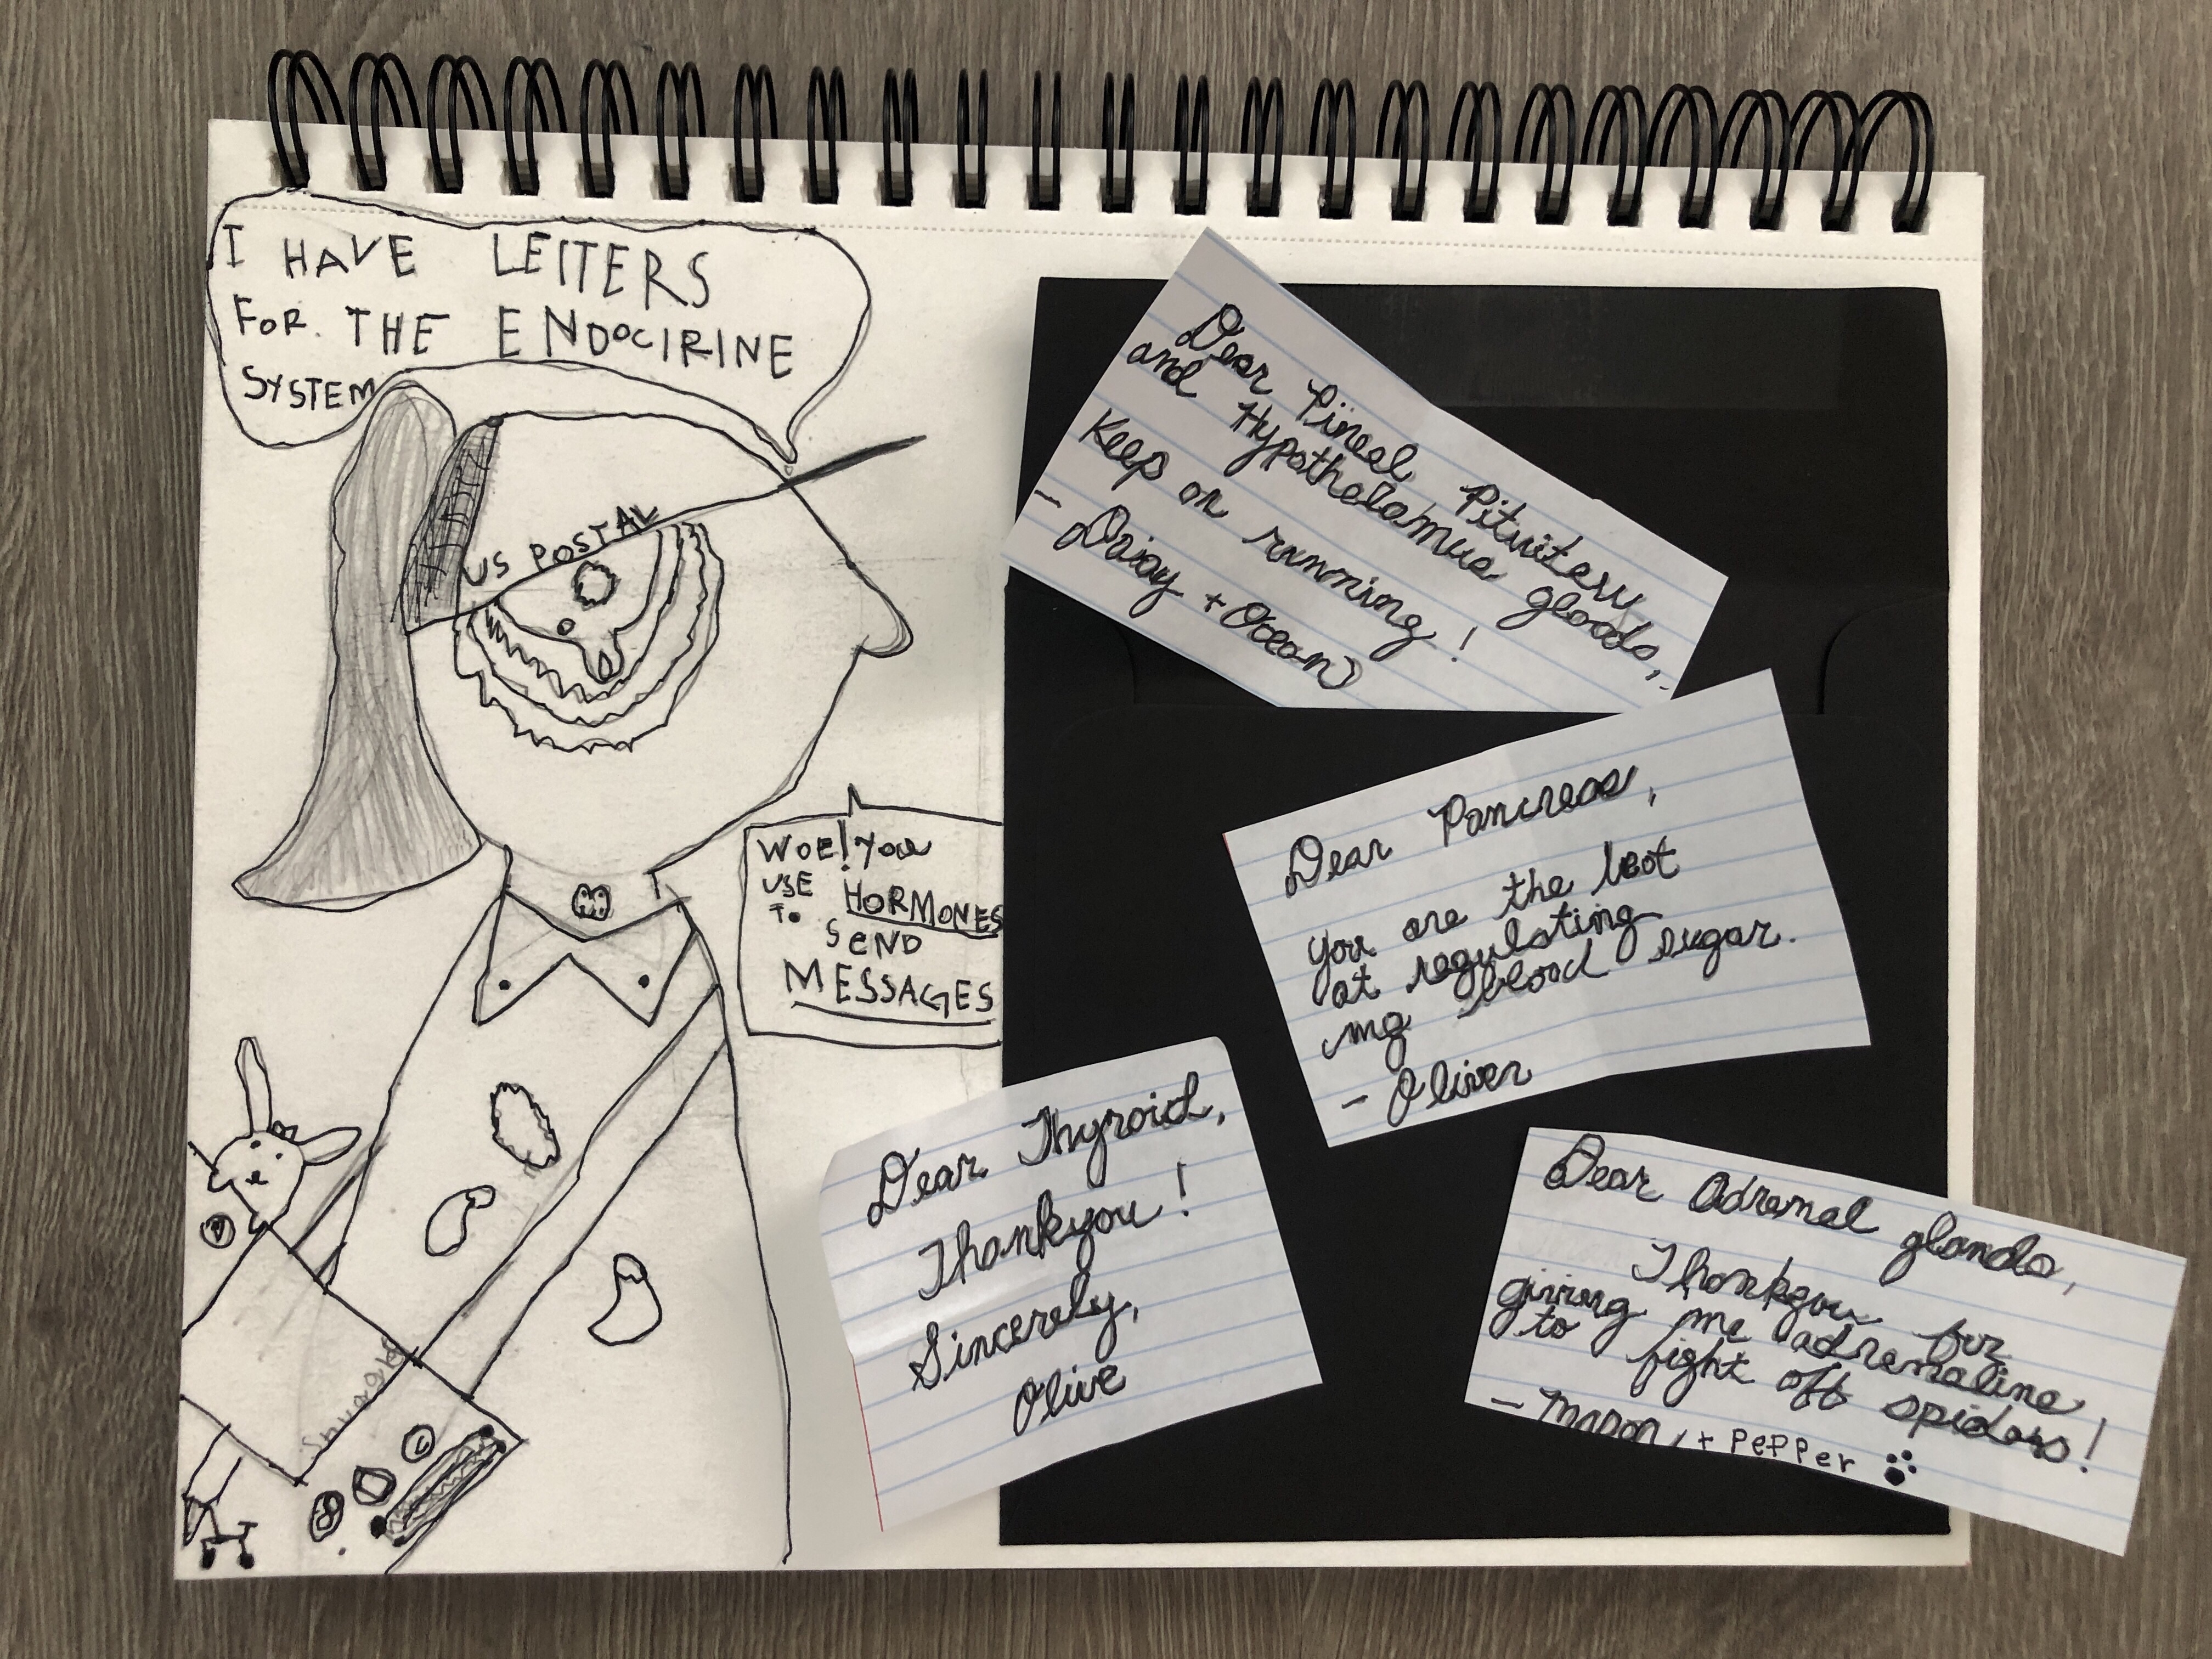 I HAVE LETTERS
FOR THE ENDOCIRINE
SYSTEM
US POSTAL
WOE! You
USE HORMONES
To SEND
MESSAGES
Snuggle
Dear Pineal Pituitary
and Hypothalamus glands,
Keep on running!
- Daisy + Ocean
Dear Pancreas,
you are the best
at regulating
my blood sugar.
- Oliver
Dear Thyroid,
Thankyou!
Sincerely,
Olive
Dear Adrenal glands,
Thankyou for
giving me adrenaline
to fight off spiders!
- Mason + Pepper